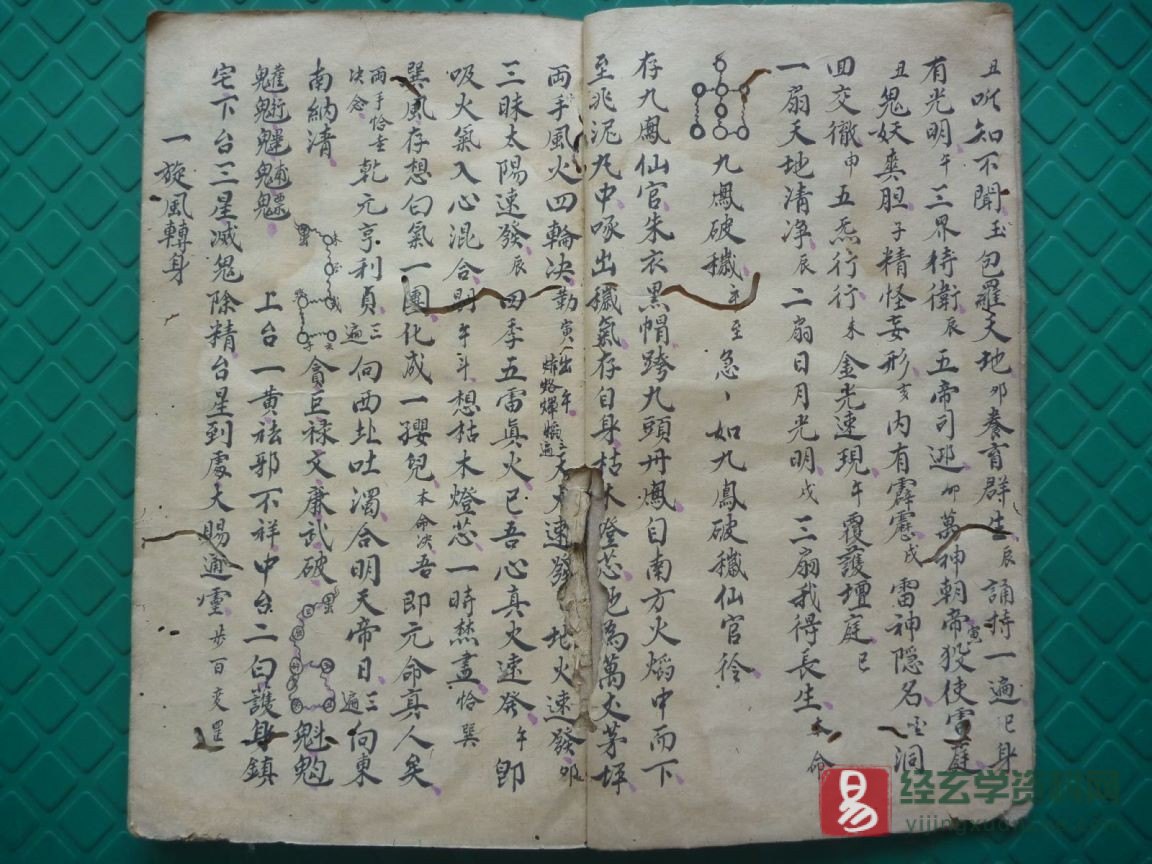 丑吡知不聞玉包羅天地卯養育群生辰誦持一遍巳身
有光明午三界侍衛辰五帝司迎卯萬神朝帝寅役使雷霆
丑鬼妖喪胆子精怪妄形亥内有霹靂戌雷神隠名洞
四交徹申五炁行行未金光速現午覆護壇庭巳
一扇天地清净辰二扇日月光明戊三扇我得長生本命
九鳳破穢至急丶如九鳳破穢仙官符
存九鳳仙官朱衣黑帽跨九頭丹鳳自南方火熖中而下
至兆泥九中啄出穢氣存自身枯木燈芯也為萬丈茅坪
両手風火四輪决勤寅一出午三遍天火速發地火速發卯
三昧太陽速發辰四季五雷真火巳吾心真火速發午即
吸火氣入心混合則午斗想枯木燈芯一時焚盡恰巽
巽風存想白氣一團化成一孾兒本命决吾即元命真人矣
両手恰
决念乾元亨利貞三遍向西北吐濁合明天帝日三遍向東
南納清貪巨禄文廉武破魁
上台一黄祛邪不祥中台二白護身鎮
宅下台三星滅鬼除精台星到處天賜通靈步百交罡
一旋風轉身
易
经玄学资料网
yijingxuan